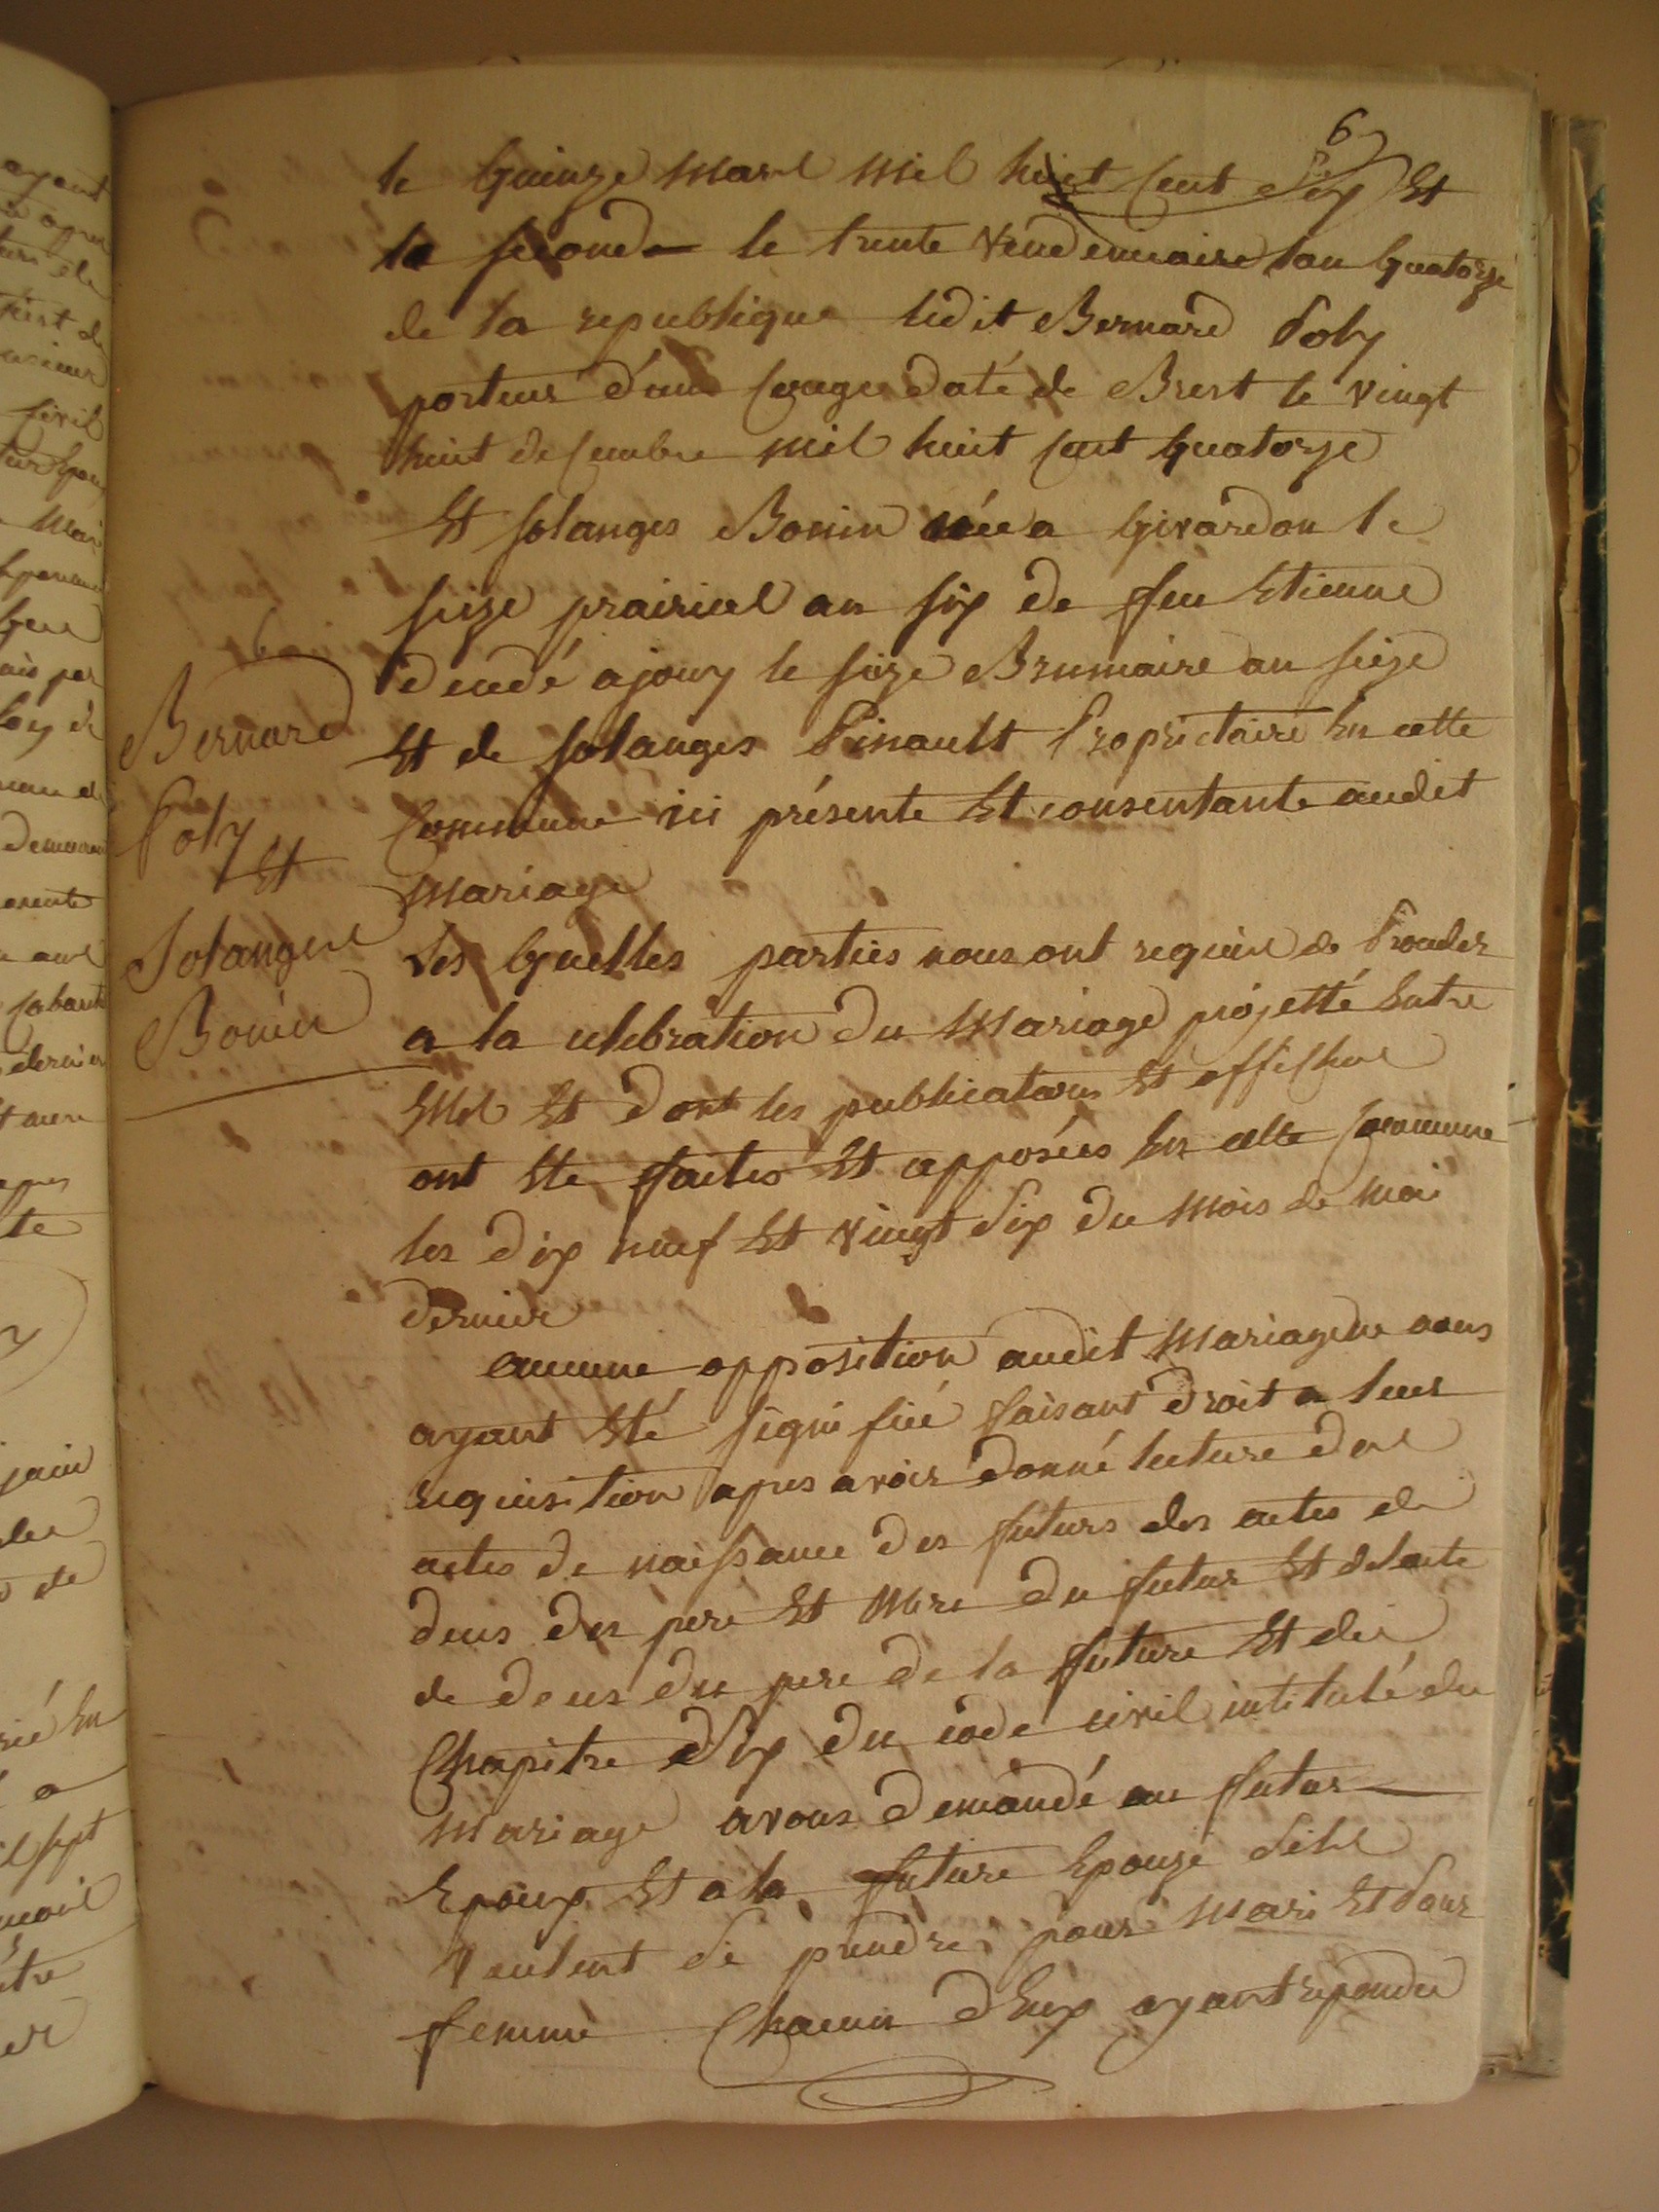 6
le quinze mars mil huit cent dix Et
la seconde le trente vendemiaire l'an quatorze
de la republique ledit Bernard Poly
porteur d'un congee daté de Brest le vingt
huit decembre mil huit cent quatorze
Et solanges Bonin née a Givardon le
seize prairial an six de feu Etienne
decedé a jouy le seize Brumaire an seize
Et de solanges Pinault Propriétaire En cette
Commune ici présente Et consentante audit
mariage
Les quelles parties nous ont requis de Proceder
a la celebration du mariage projetté Entre
Elles Et dont les publications Et affiches
ont Ete faites Et apposées En cette Commune
les dix neuf Et vingt six du mois de mai
dernier
aucune opposition audit mariage ne nous
ayant Eté signifiée faisant droit a leur
requisition apres avoir donné lecture des
actes de naissance des futurs des actes de
deces des pere Et Mere du futur Et de lacte
de deces du pere de la future Et du
Chapitre Six du code civil intitulé du
mariage avons demandé au futur
Epoux Et a la future Epouse sils
veulent se prendre pour mari Et Pour
femme Chacun dEux ayant repondu
6
Bernard
Poly
Et
Solanges
Bonin